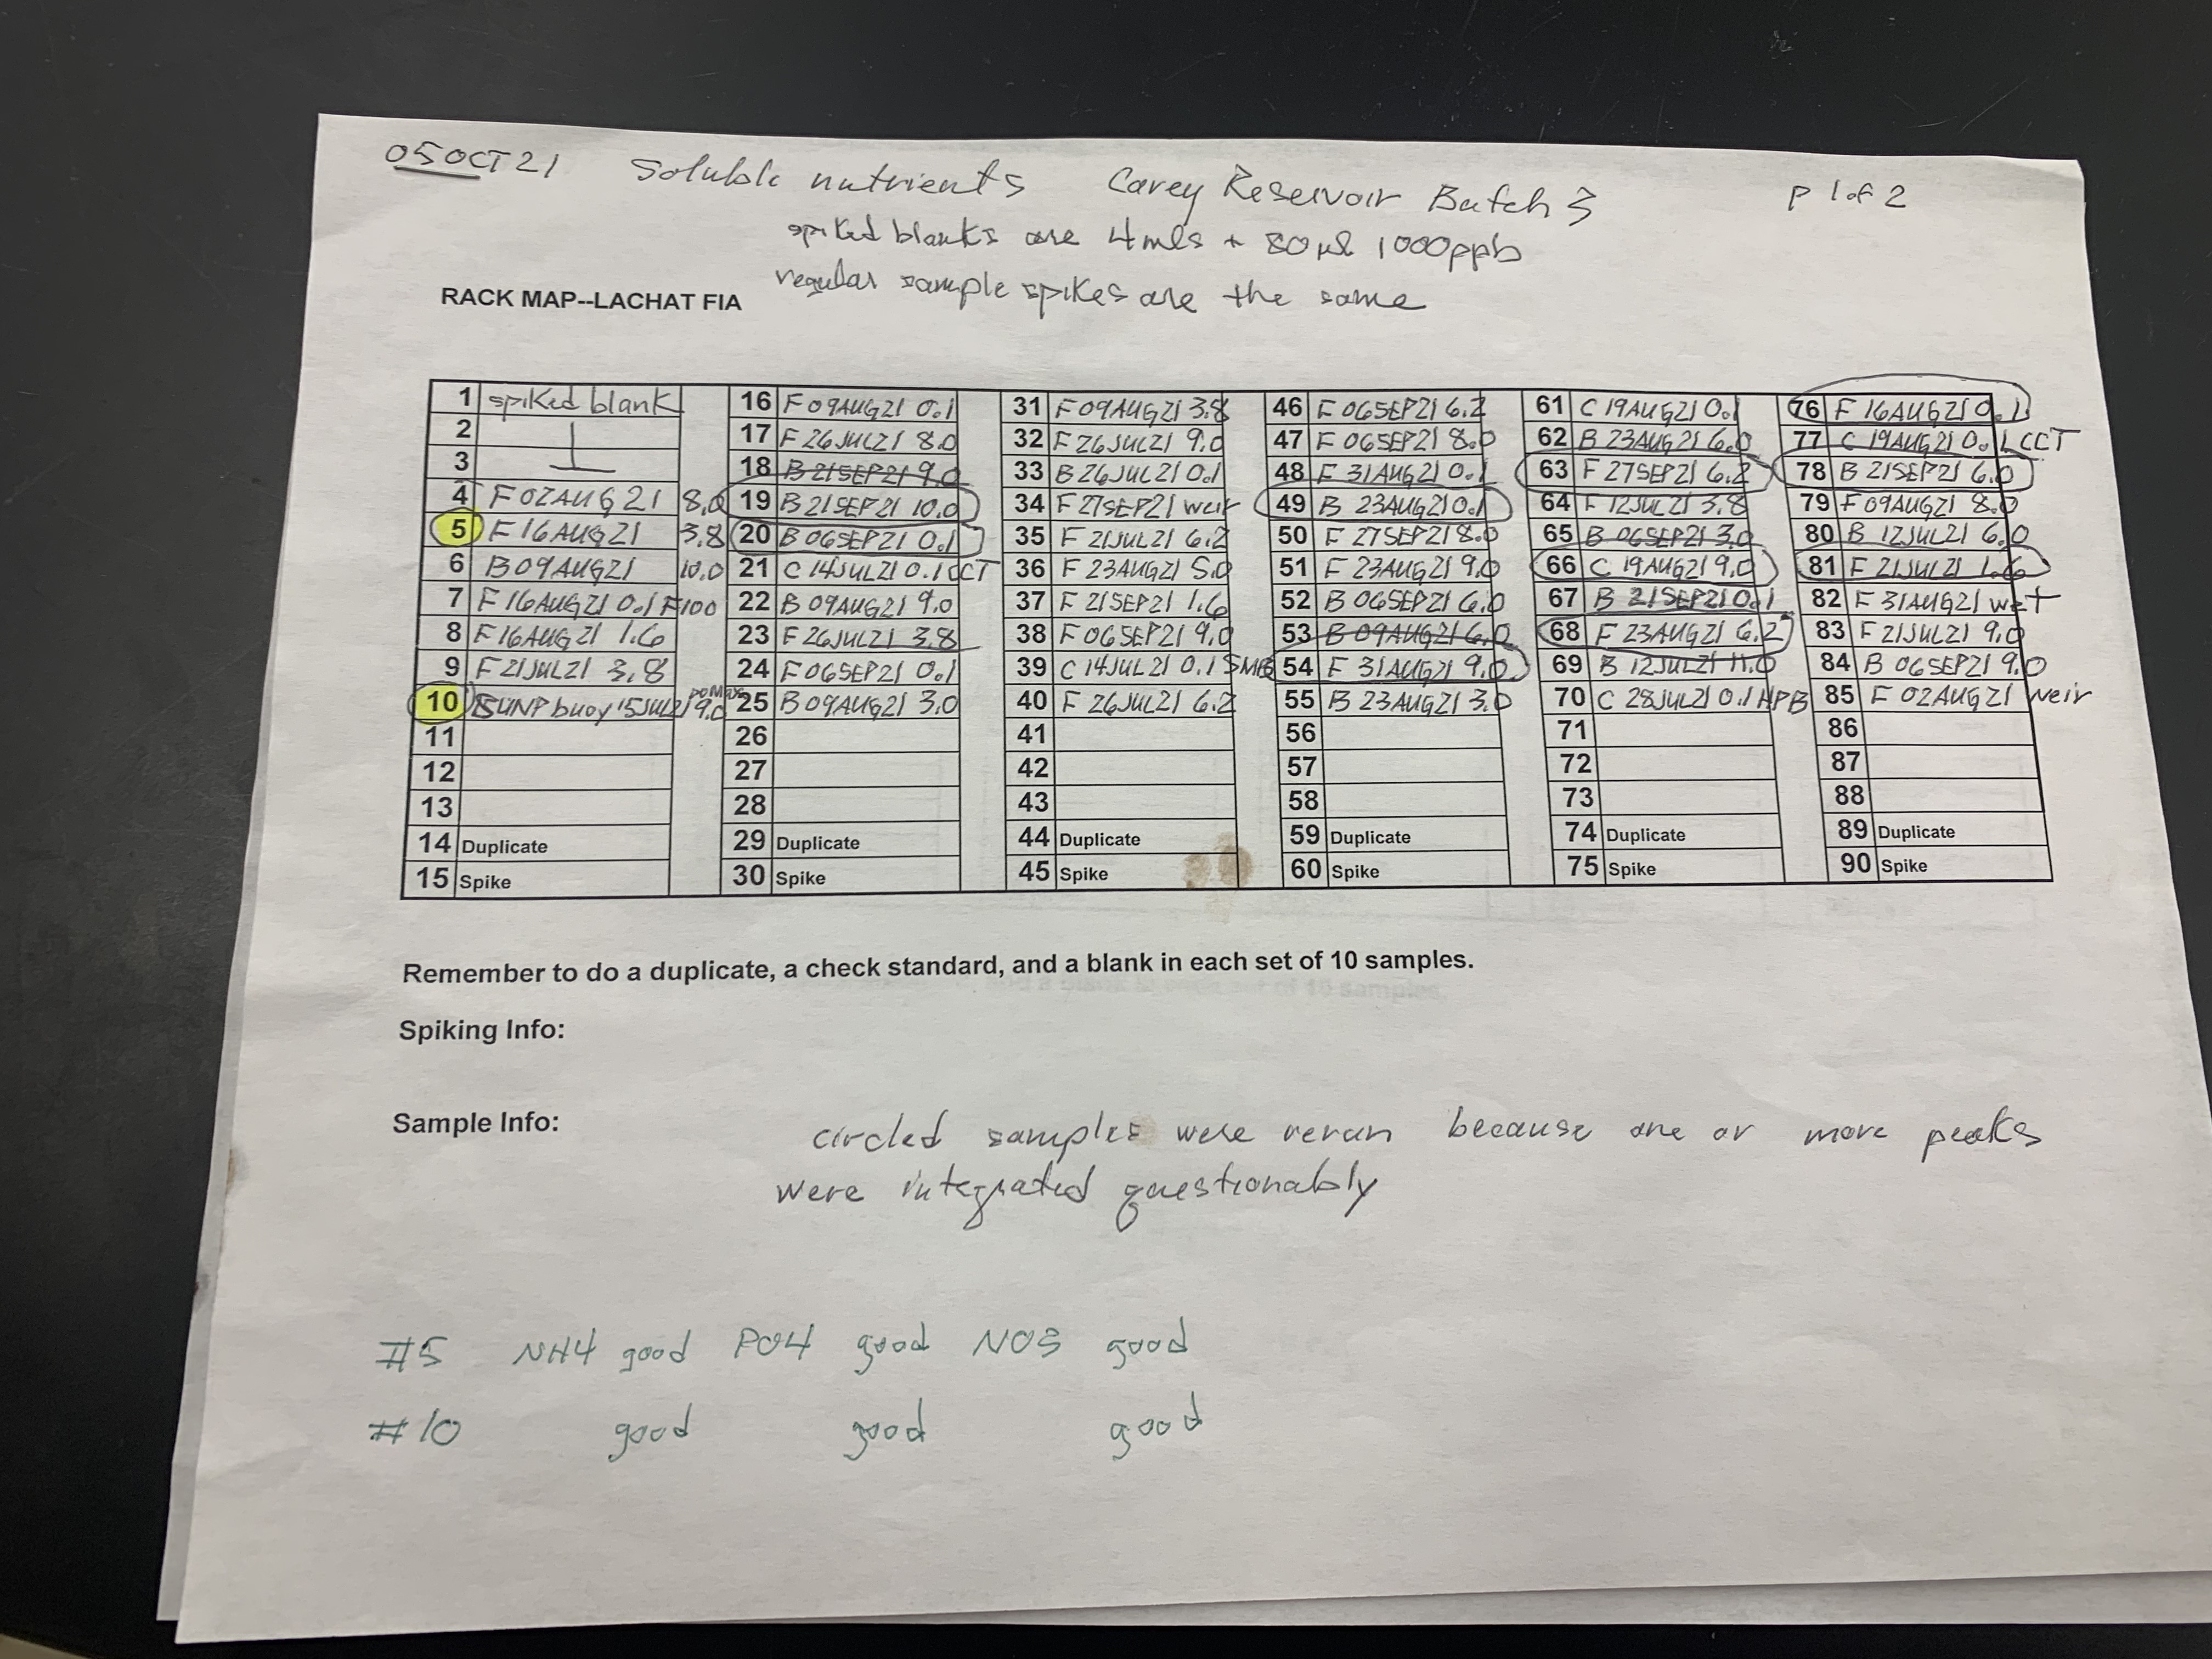 05OCT21 Soluble nutrients Carey Reservoir Batch 3 P 1 of 2
spiked blanks are 4mls + 80µl 1000ppb
regular sample spikes are the same
RACK MAP--LACHAT FIA
1 spiked blank 16 F09AUG21 0.1 31 F09AUG21 3.8 46 F06SEP21 6.2 61 C 19AUG21 0.1 76 F 16AUG21 0.1
2 17 F26JUL21 8.0 32 F26JUL21 9.0 47 F06SEP21 8.0 62 B 23AUG21 6.0 77 C 19AUG21 0.1 CCT
3 18 B 21SEP21 9.0 33 B26JUL21 0.1 48 F 31AUG21 0.1 63 F 27SEP21 6.2 78 B 21SEP21 6.0
4 F02AUG21 8.0 19 B21SEP21 10.0 34 F27SEP21 weir 49 B 23AUG21 0.1 64 F 12JUL21 3.8 79 F09AUG21 8.0
5 F16AUG21 3.8 20 B06SEP21 0.1 35 F 21JUL21 6.2 50 F 27SEP21 8.0 65 B 06SEP21 3.0 80 B 12JUL21 6.0
6 B09AUG21 10.0 21 C 14JUL21 0.1 CCT 36 F 23AUG21 5.0 51 F 23AUG21 9.0 66 C 19AUG21 9.0 81 F 21JUL21 1.6
7 F 16AUG21 0.1 F100 22 B 09AUG21 9.0 37 F 21SEP21 1.6 52 B 06SEP21 6.0 67 B 21SEP21 0.1 82 F 31AUG21 wet
8 F16AUG21 1.6 23 F26JUL21 3.8 38 F06SEP21 9.0 53 B 09AUG21 6.0 68 F 23AUG21 6.2 83 F 21JUL21 9.0
9 F 21JUL21 3.8 24 F06SEP21 0.1 39 C14JUL21 0.1 SMB 54 F 31AUG21 9.0 69 B 12JUL21 11.0 84 B 06SEP21 9.0
10 SUNP buoy 15JUL21 9.0 25 B09AUG21 3.0 40 F 26JUL21 6.2 55 B 23AUG21 3.0 70 C 28JUL21 0.1 HPB 85 F 02AUG21 weir
11 26 41 56 71 86
12 27 42 57 72 87
13 28 43 58 73 88
14 Duplicate 29 Duplicate 44 Duplicate 59 Duplicate 74 Duplicate 89 Duplicate
15 Spike 30 Spike 45 Spike 60 Spike 75 Spike 90 Spike
Remember to do a duplicate, a check standard, and a blank in each set of 10 samples.
Spiking Info:
Sample Info:
circled samples were rerun because one or more peaks
were integrated questionably
#5 NH4 good PO4 good NO3 good
#10 good good good